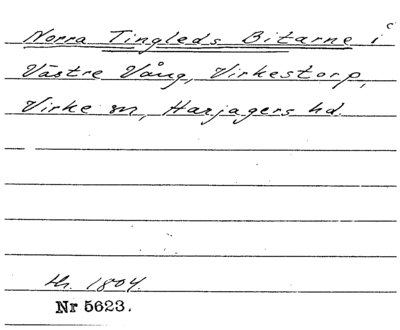 Norra Tingleds Bitarne i
Västre Vång, Virkestorp,
Virke sn, Harjagers hd.
th. 1804.
Nr 5623.